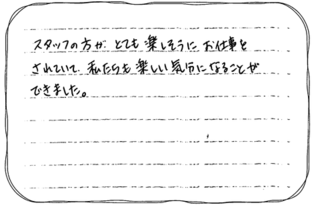 スタッフの方が、とても楽しそうに お仕事を
されていて、私たちも 楽しい気分になることが
できました。